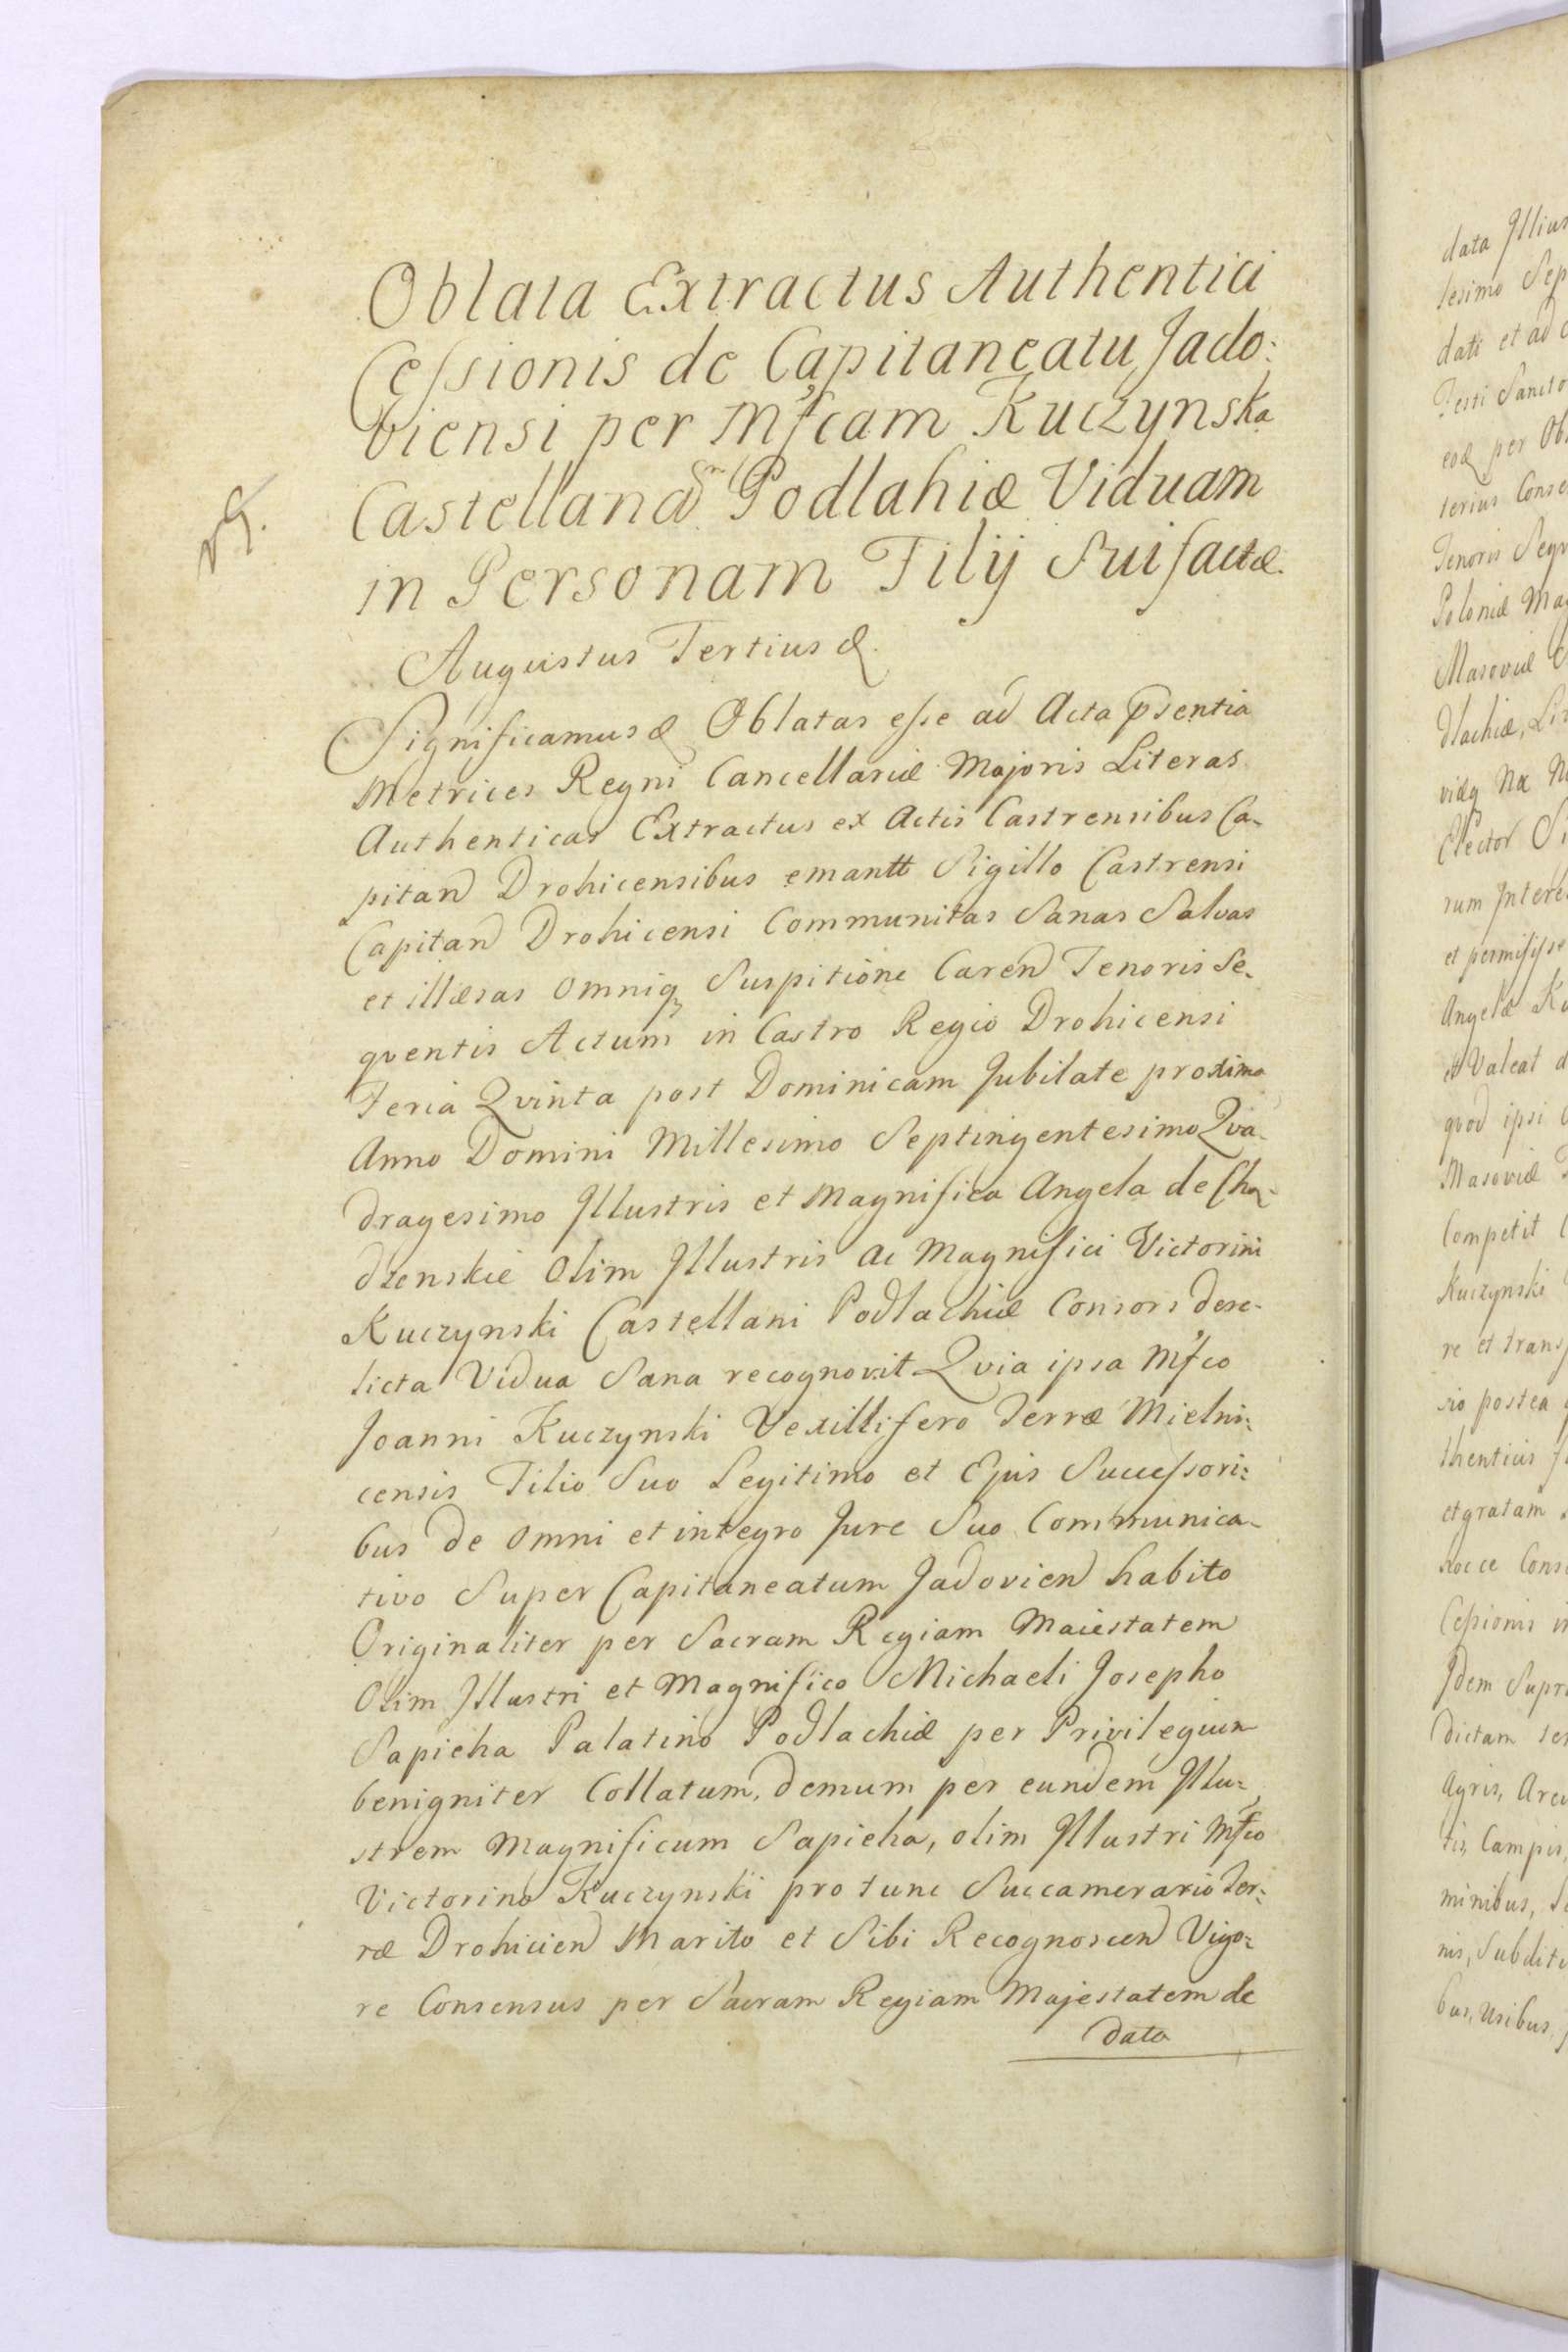 Oblata Extractus Authentici
Cessionis de Capitaneatu Jado:
viensi per Mfcam Kuczynska
Castellanā Podlahiæ Viduam
in Personam Filij Sui factæ.
Augustus Tertius &.
Significamus & Oblatas esse ad Acta psentia
Metrices Regni Cancellariæ Majoris Literas
Authenticas Extractus ex Actis Castrensibus Ca-
pitan Drohicensibus emantt Sigillo Castrensi
Capitan Drohicensi Communitas Sanas Salvas
et illæsas omniq, Suspitione Caren Tenoris Se-
qventis Actum in Castro Regio Drohicensi
Feria Qvinta post Dominicam Jubilate proxima
Anno Domini Millesimo Septingentesimo Qva-
dragesimo Jllustris et Magnifica Angela de Cho-
dzenskie Olim Jllustris ac Magnifici Victorini
Kuczynski Castellani Podlachiæ Consors dere-
licta Vidua Sana recognovit Qvia ipsa Mfco
Joanni Kuczynski Vexillifero Terræ Mielni:
censis Filio Suo Legitimo et Ejus Successori:
bus de omni et integro Jure Suo Communica-
tivo Super Capitaneatum Jadovien habito
Originaliter per Sacram Regiam Maiestatem
Olim Jllustri et Magnifico Michaeli Josepho
Sapieha Palatino Podlachiæ per Privilegium
benigniter Collatum, demum per eundem Jllu:
strem Magnificum Sapieha, olim Jllustri Mfco
Victorino Kuczynski pro tunc Succamerario Ter:
ræ Drohicien Marito et Sibi Recognoscen Vigo:
re Consensus per Sacram Regiam Majestatem de
data
data Jllius
dati et ad
Festi Sancto
per Ob
terius Conse
Tenoris Seqv
Poloniæ Mag
Masoviæ
dlachiæ, Li
Elector
rum Jntere
Angelæ Ku
et Valeat
qvod ipsi
Masoviæ
Competit
Kuczynski
re et trans
rio postea
thenticis
et gratam
hocce Cons
Cessionis in
Jdem Supr
dictam
Agris,
tis, Campis,
minibus,
nis, Subdit
bus, Usibus,